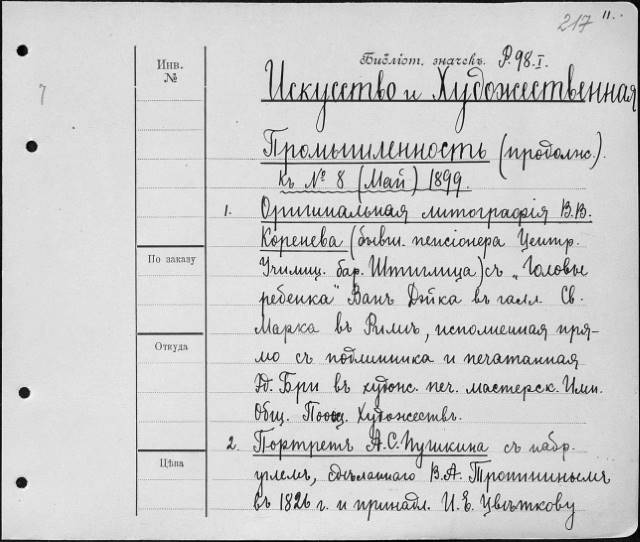 217 11.
Инв. №
Библіот. значекъ. P.98.I.
7
Искусство и Художественная
Промышленность (продолж.).
къ № 8 (Май) 1899.
1. Оригинальная литографія В.В.
Коренева (бывш. пенсіонера Центр.
По заказу
Училищ. бар. Штиглица) съ „Головы
ребенка" Ванъ Дейка въ галл. Св.
Марка въ Римѣ, исполненная пря-
Откуда
мо съ подлинника и печатанная
Эд. Бри въ худож. печ. мастерск. Имп.
Общ. Поощ. Художествъ.
2. Портретъ А.С. Пушкина съ набр.
Цѣна
углемъ, сдѣланнаго В.А. Тропининымъ
въ 1826 г. и принадл. И.Е. Цвѣткову